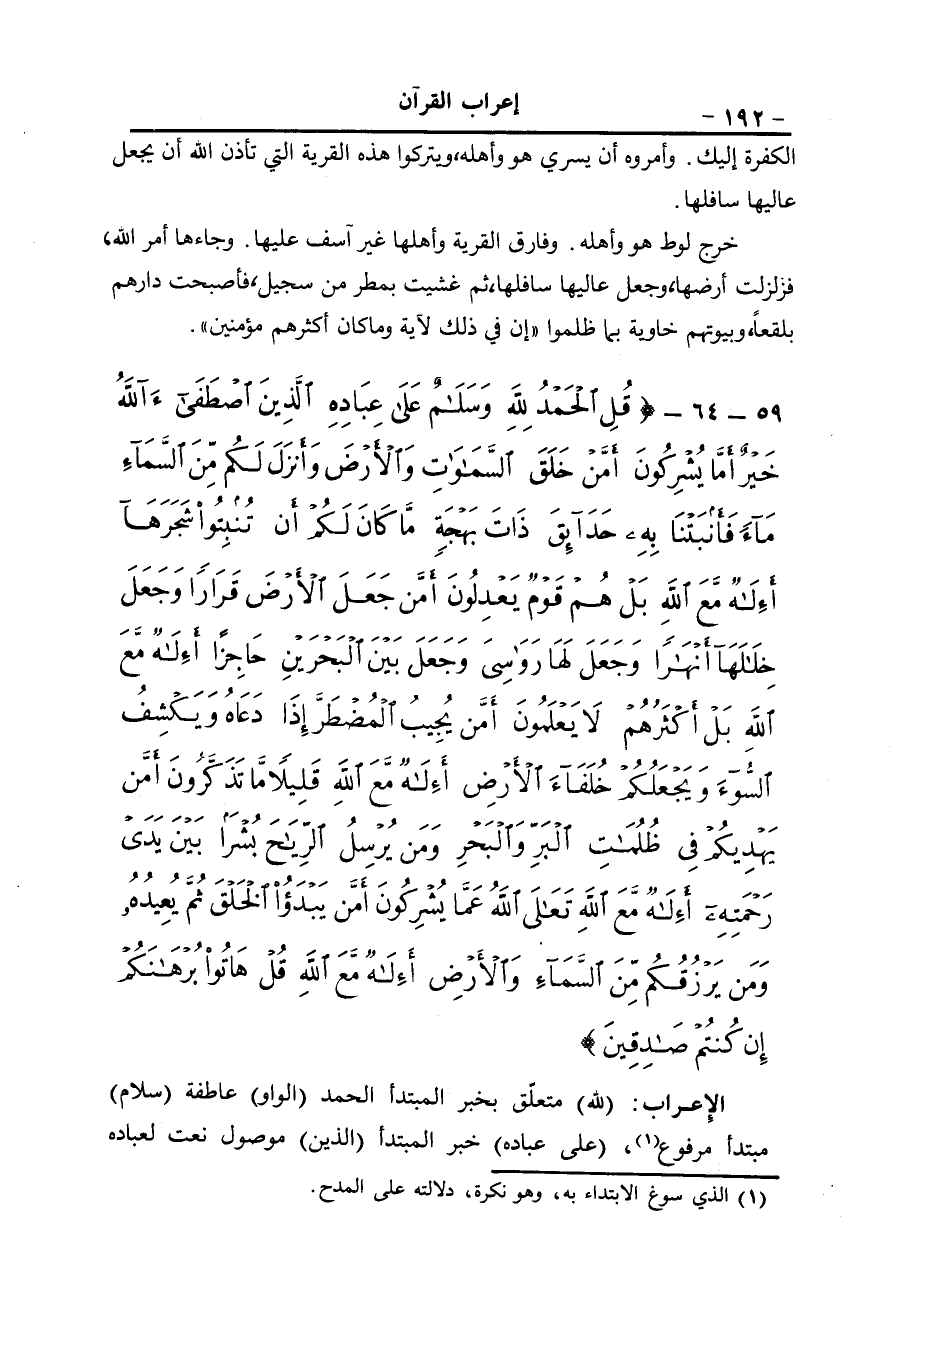 - ١٩٢ - إعراب القرآن
الكفرة إليك. وأمروه أن يسري هو وأهله،ويتركوا هذه القرية التي تأذن الله أن يجعل
عاليها سافلها.
خرج لوط هو وأهله. وفارق القرية وأهلها غير آسف عليها. وجاءها أمر الله،
فزلزلت أرضها،وجعل عاليها سافلها،ثم غشيت بمطر من سجيل،فأصبحت دارهم
بلقعاً،وبيوتهم خاوية بما ظلموا «إن في ذلك لآية وماكان أكثرهم مؤمنين».
٥٩ - ٦٤ - ﴿ قُلِ ٱلْحَمْدُ لِلَّهِ وَسَلَٰمٌ عَلَىٰ عِبَادِهِ ٱلَّذِينَ ٱصْطَفَىٰٓ ءَآللَّهُ
خَيْرٌ أَمَّا يُشْرِكُونَ أَمَّنْ خَلَقَ ٱلسَّمَٰوَٰتِ وَٱلْأَرْضَ وَأَنزَلَ لَكُم مِّنَ ٱلسَّمَآءِ
مَآءً فَأَنۢبَتْنَا بِهِۦ حَدَآئِقَ ذَاتَ بَهْجَةٍ مَّا كَانَ لَكُمْ أَن تُنۢبِتُوا۟ شَجَرَهَآ
أَءِلَٰهٌ مَّعَ ٱللَّهِ بَلْ هُمْ قَوْمٌ يَعْدِلُونَ أَمَّن جَعَلَ ٱلْأَرْضَ قَرَارًا وَجَعَلَ
خِلَٰلَهَآ أَنْهَٰرًا وَجَعَلَ لَهَا رَوَٰسِىَ وَجَعَلَ بَيْنَ ٱلْبَحْرَيْنِ حَاجِزًا أَءِلَٰهٌ مَّعَ
ٱللَّهِ بَلْ أَكْثَرُهُمْ لَا يَعْلَمُونَ أَمَّن يُجِيبُ ٱلْمُضْطَرَّ إِذَا دَعَاهُ وَيَكْشِفُ
ٱلسُّوٓءَ وَيَجْعَلُكُمْ خُلَفَآءَ ٱلْأَرْضِ أَءِلَٰهٌ مَّعَ ٱللَّهِ قَلِيلًا مَّا تَذَكَّرُونَ أَمَّن
يَهْدِيكُمْ فِى ظُلُمَٰتِ ٱلْبَرِّ وَٱلْبَحْرِ وَمَن يُرْسِلُ ٱلرِّيَٰحَ بُشْرًۢا بَيْنَ يَدَىْ
رَحْمَتِهِۦٓ أَءِلَٰهٌ مَّعَ ٱللَّهِ تَعَٰلَى ٱللَّهُ عَمَّا يُشْرِكُونَ أَمَّن يَبْدَؤُا۟ ٱلْخَلْقَ ثُمَّ يُعِيدُهُۥ
وَمَن يَرْزُقُكُم مِّنَ ٱلسَّمَآءِ وَٱلْأَرْضِ أَءِلَٰهٌ مَّعَ ٱللَّهِ قُلْ هَاتُوا۟ بُرْهَٰنَكُمْ
إِن كُنتُمْ صَٰدِقِينَ ﴾
الإعراب: (لله) متعلّق بخبر المبتدأ الحمد (الواو) عاطفة (سلام)
مبتدأ مرفوع(١)، (على عباده) خبر المبتدأ (الذين) موصول نعت لعباده
(١) الذي سوغ الابتداء به، وهو نكرة، دلالته على المدح.